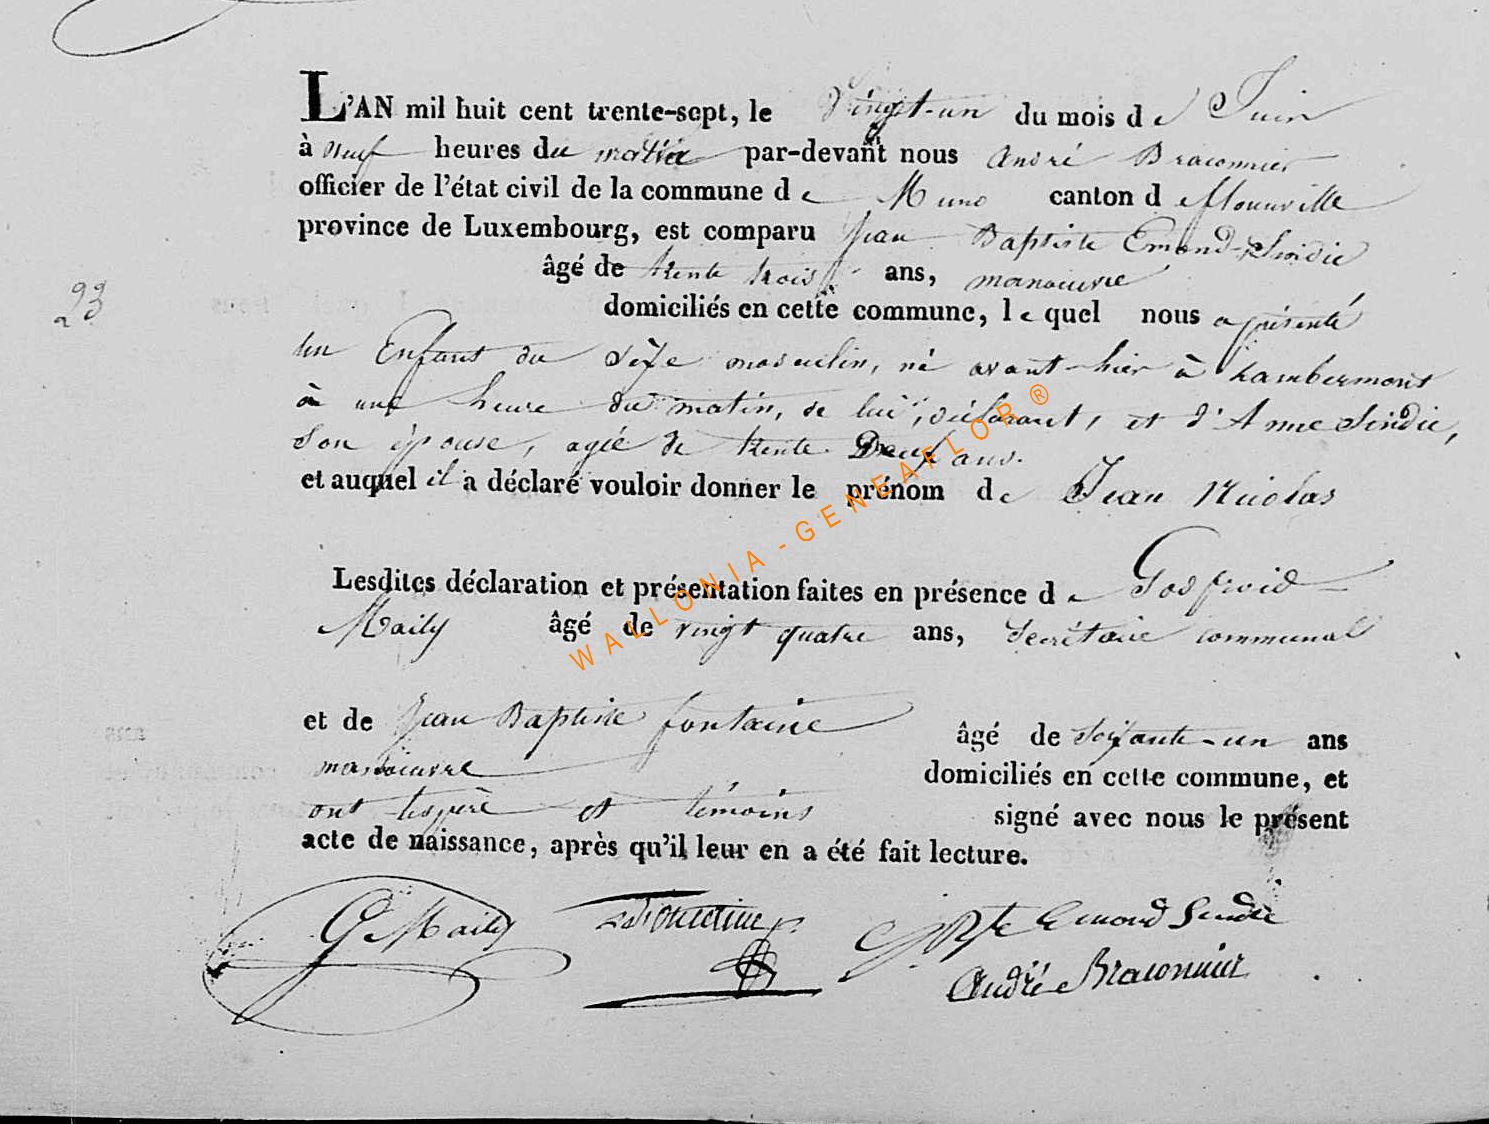 L'AN mil huit cent trente-sept, le Vingt-un du mois de Juin
à neuf heures du matin par-devant nous andré Braconnier
officier de l'état civil de la commune de Muno canton d florenville
province de Luxembourg, est comparu Jean Baptiste Emond-Sindic
âgé de trente trois ans, manoeuvre
23
domiciliés en cette commune, le quel nous a présenté
un Enfant du Sexe masculin, né avant-hier à Lambermont
à une heure du matin, de lui, déclarant, et d'Anne Sindic,
Son épouse, agée de trente Deux ans.
et auquel il a déclaré vouloir donner le prénom de Jean Nicolas
Lesdites déclaration et présentation faites en présence de Gosfroid
Maily âgé de vingt quatre ans, Secrétaire communal
et de Jean Baptiste fontaine âgé de Soixante-un ans
manoeuvre domiciliés en cette commune, et
ont les père et témoins signé avec nous le présent
acte de naissance, après qu'il leur en a été fait lecture.
G Maily JBte Emond Sindic
André Braconnier
WALLONIA - GENEAFLOR ®